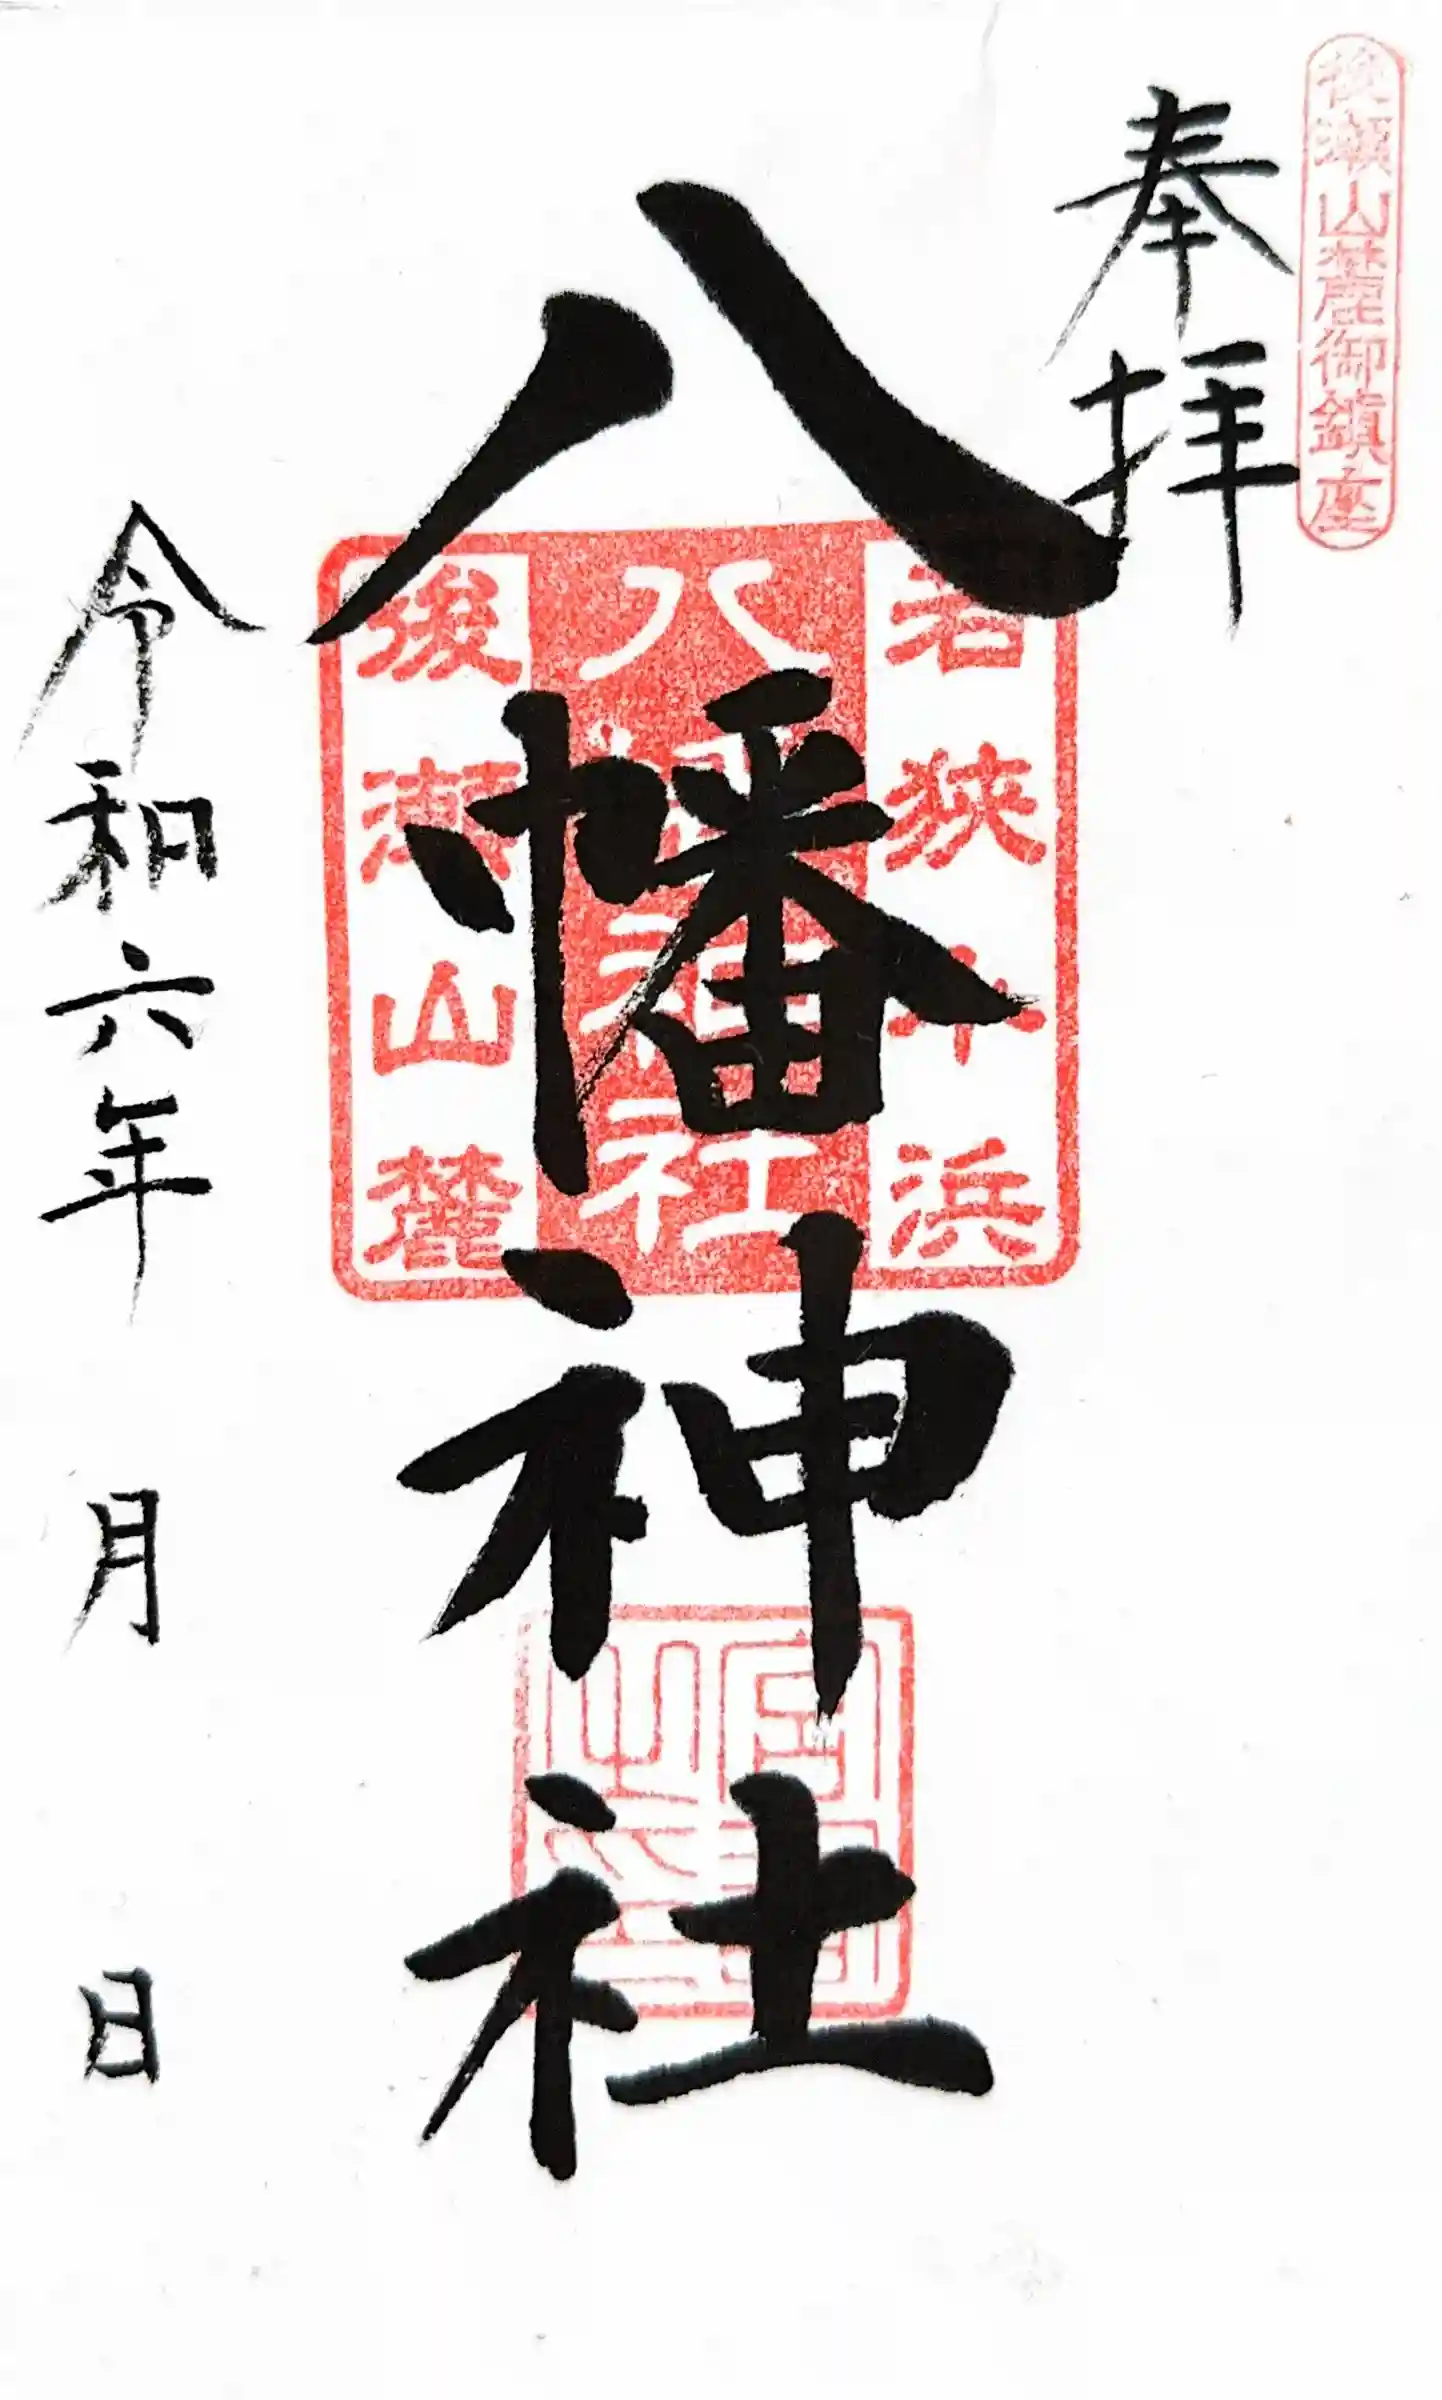 後瀬山麓御鎮座
奉拝
八幡神社
若狭小浜
八幡神社
後瀬山麓
令和六年 月 日